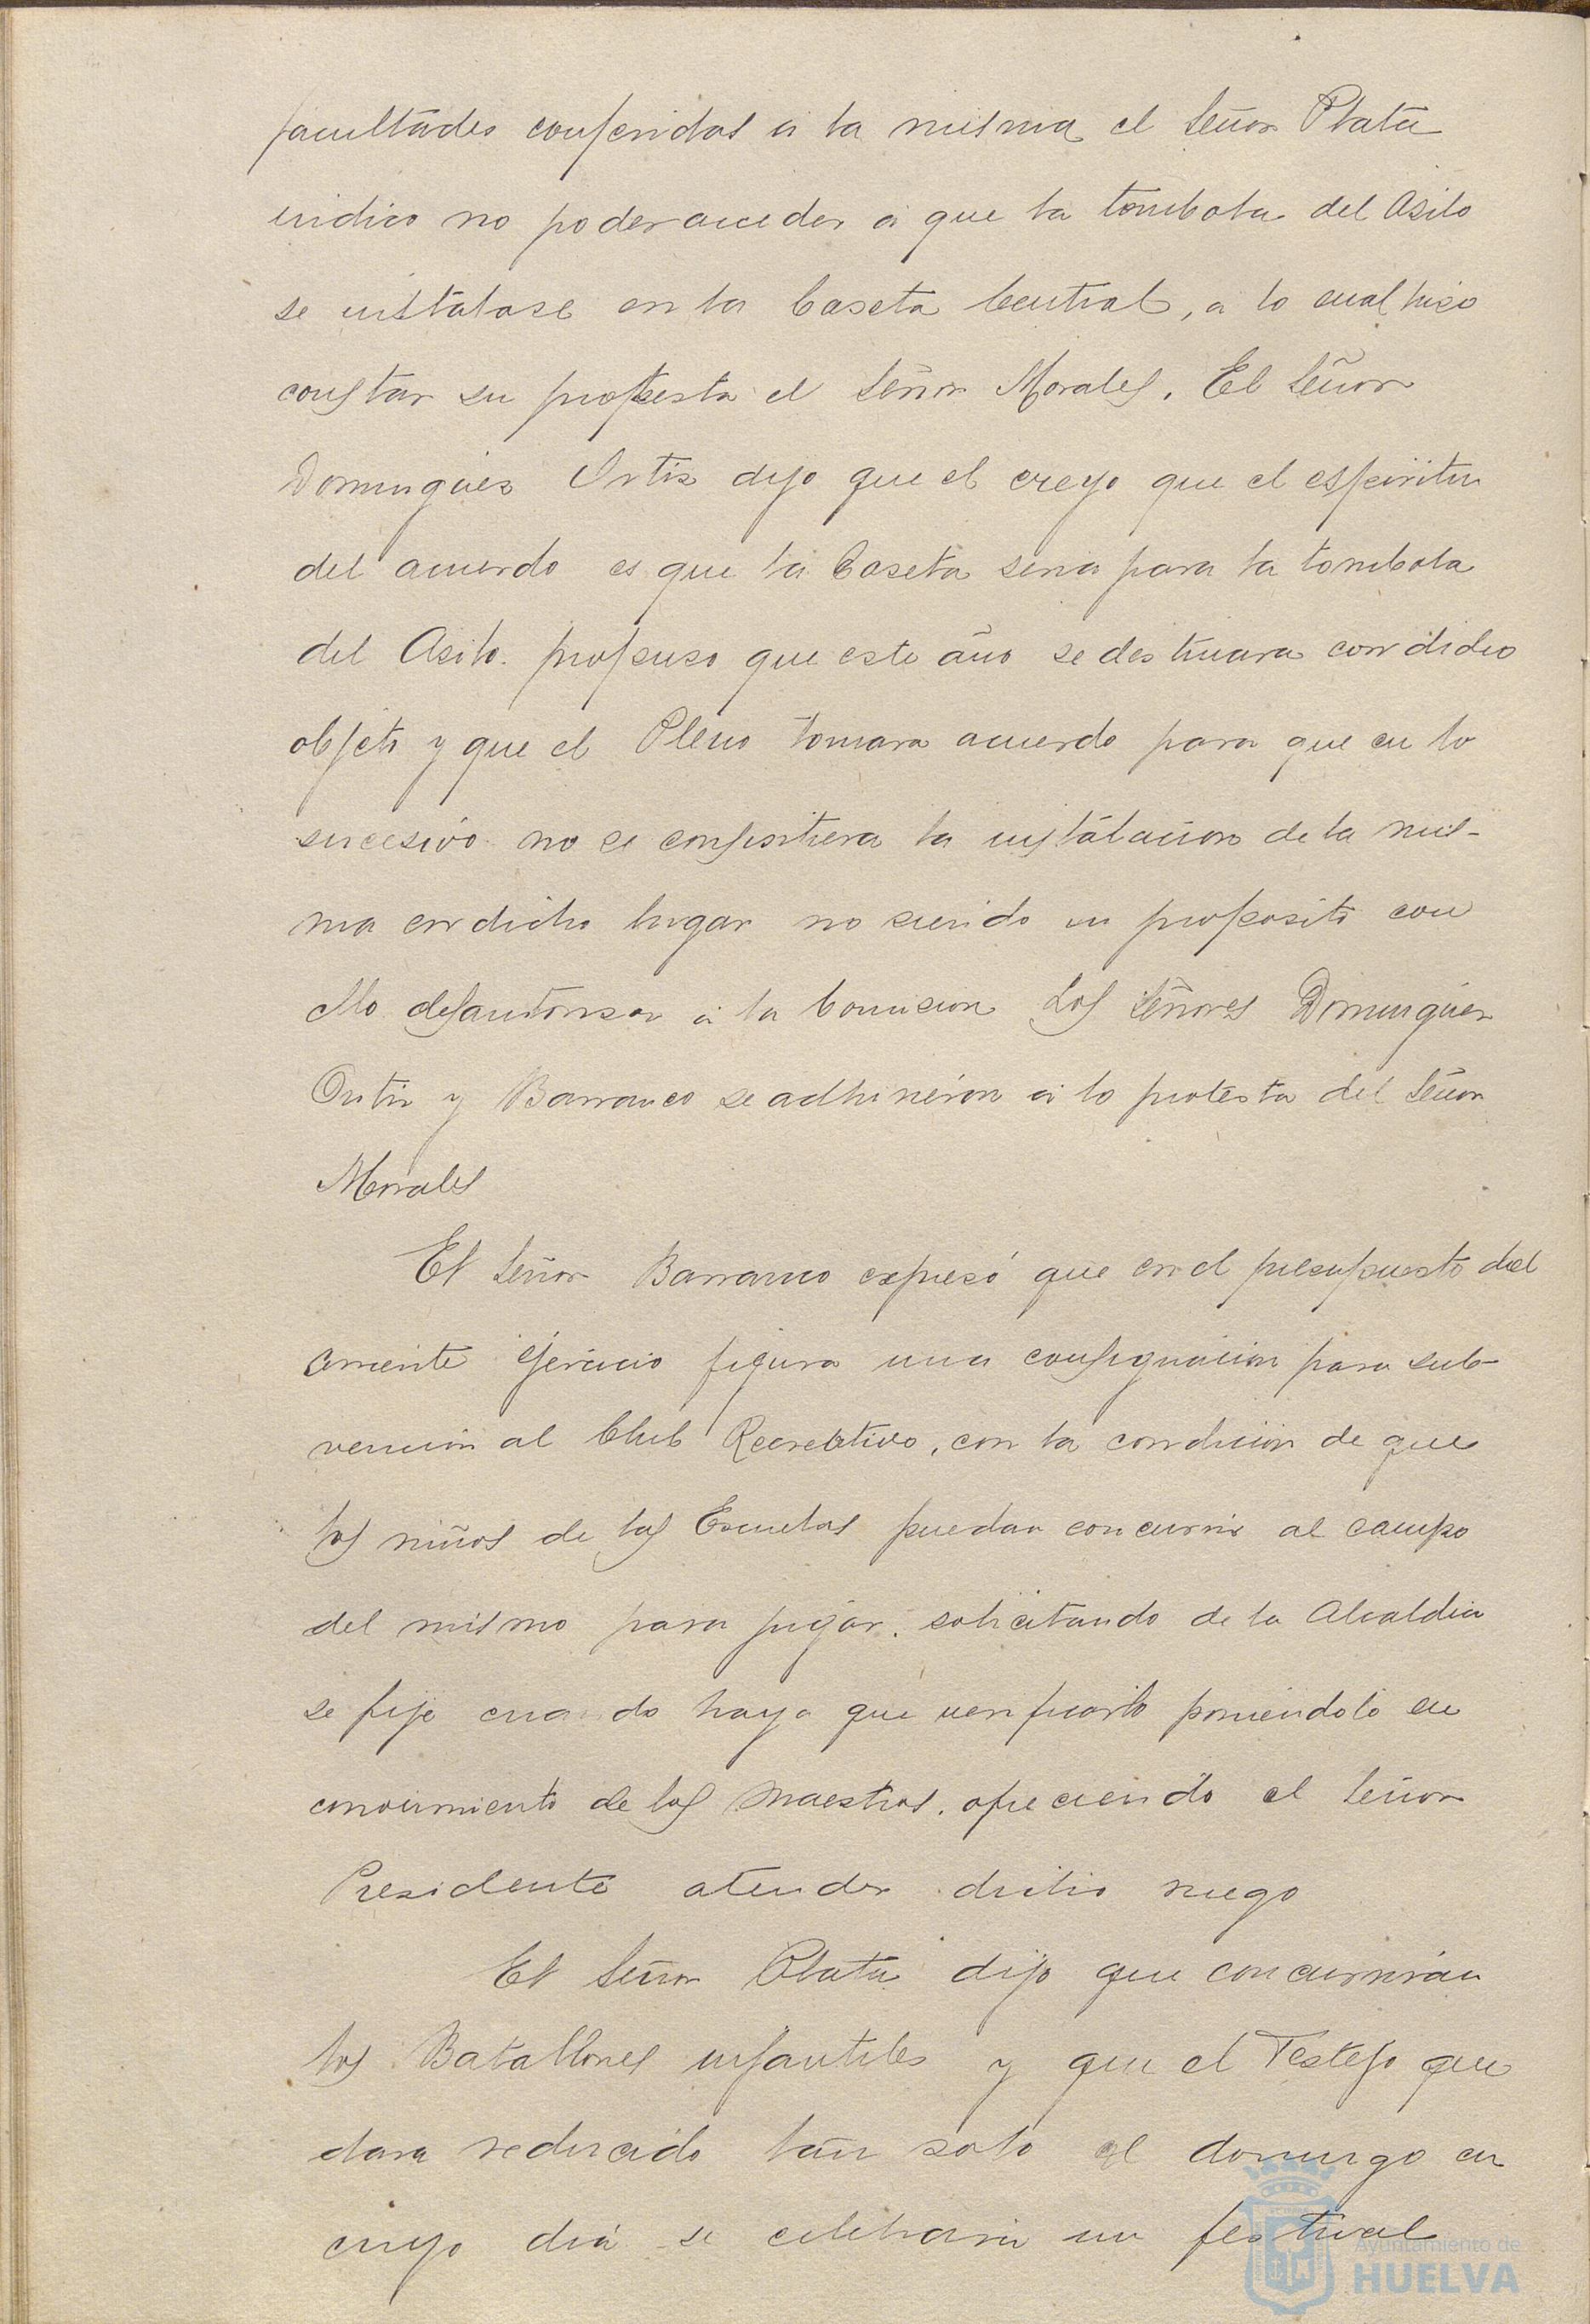 facultades conferidas a la misma el Señor Plata
indico no poder acceder a que la tombola del Asilo
se instalase en la Caseta Central, a lo cual hizo
constar su protesta el Señor Morales. El Señor
Dominguez Ortiz dijo que el creyo que el espiritu
del acuerdo es que la Caseta seria para la tombola
del Asilo. propuso que este año se destinara con dicho
objeto y que el Pleno tomara acuerdo para que en lo
sucesivo no se consintiera la instalacion de la mis-
ma en dicho lugar no siendo su proposito con
ello desautorizar a la Comision Los Señores Dominguez
Ortiz y Barranco se adhirieron a la protesta del Señor
Morales
El Señor Barranco expresó que en el presupuesto del
corriente ejercicio figura una consignacion para sub-
vencion al Club Recreativo, con la condicion de que
los niños de las Escuelas puedan concurrir al campo
del mismo para jugar. solicitando de la Alcaldia
se fije cuando haya que verificarlo poniendolo en
conocimiento de los Maestros. ofreciendo el Señor
Presidente atender dicho ruego
El Señor Plata dijo que concurrirán
los Batallones infantiles y que el Festejo que
dara reducido tan solo al domingo en
cuyo dia se celebrara un festival
Ayuntamiento de
HUELVA